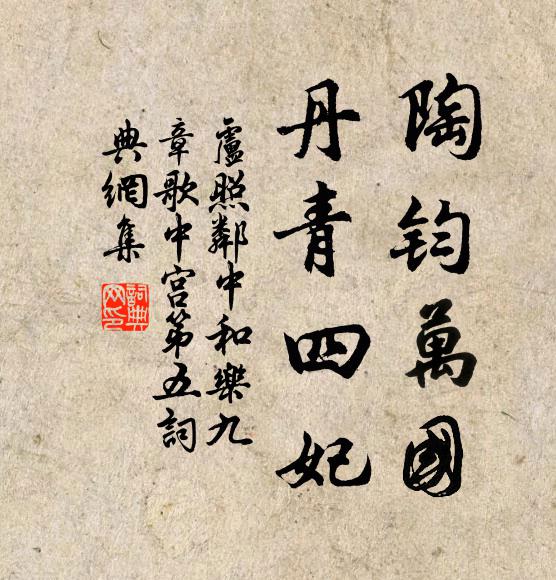 陶鈞萬國
丹青四妃
盧照鄰中和樂九
章歌中宮第五詞
典網集
詞典網印